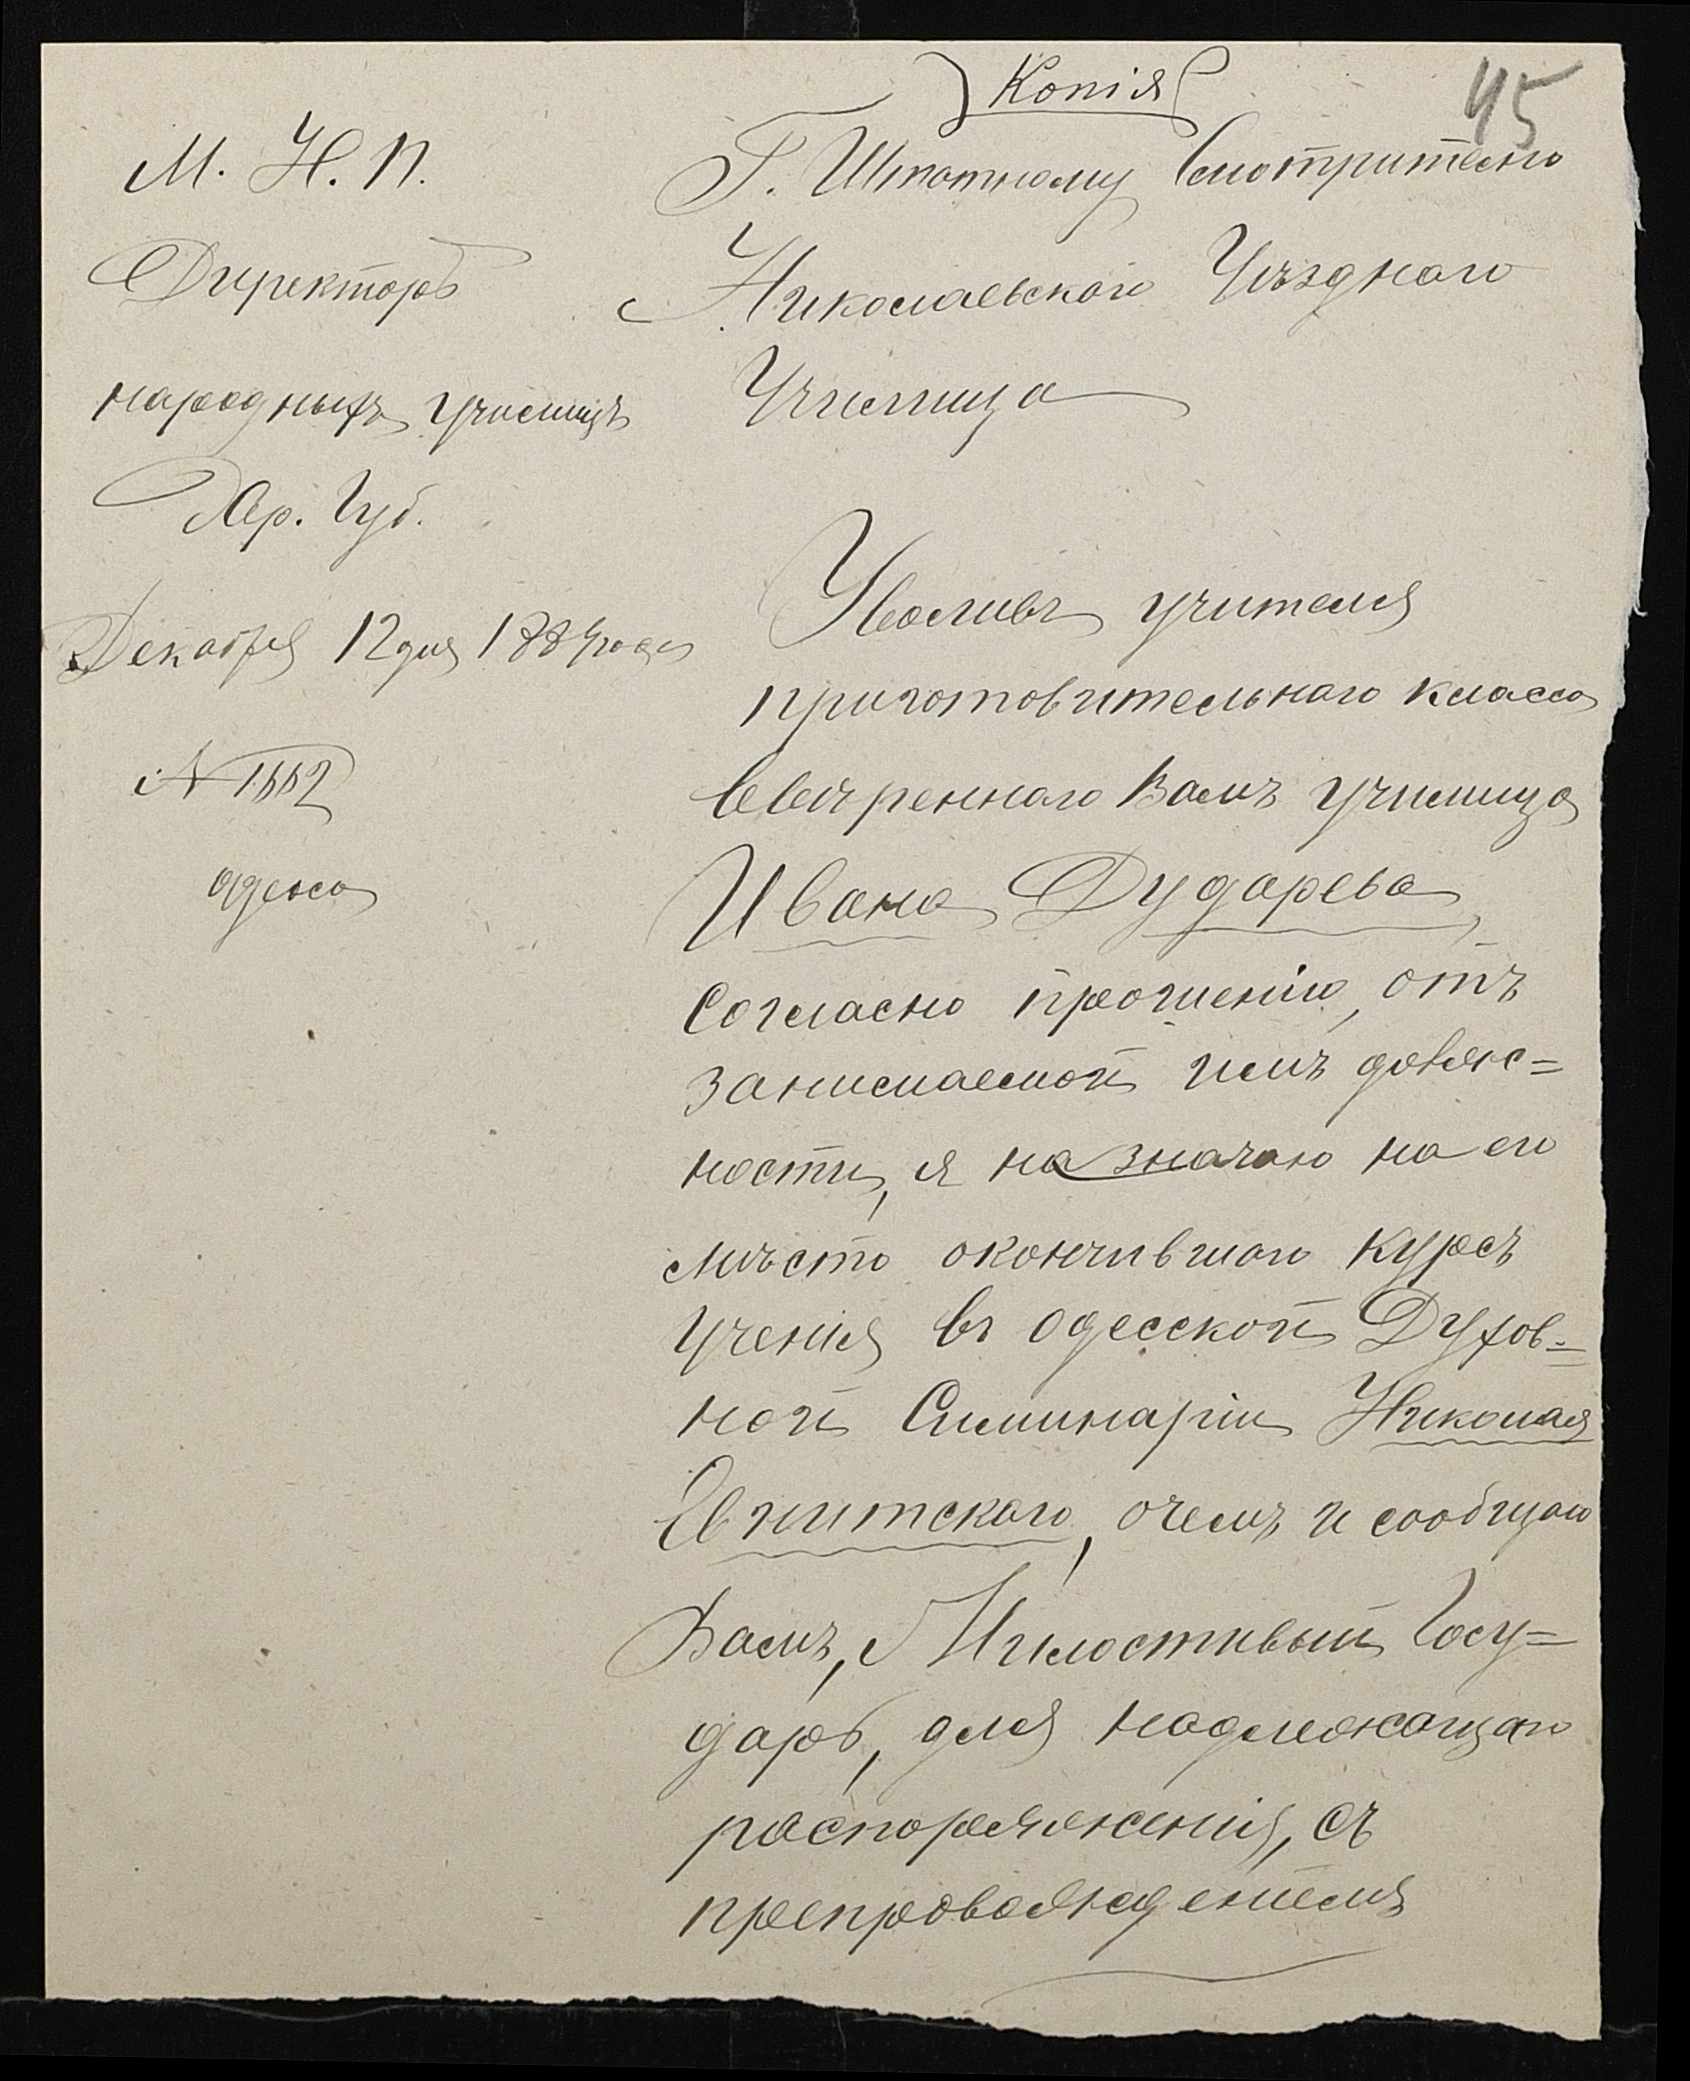 Копія
45
М. Н. П.
Директоръ
народныхъ училищъ
Хер. Губ.
Декабря 12 дня 1884 года
N 1662
Одесса
Г. Штатному Смотрителю
Николаевскаго Уѣзднаго
Училища
Уволивъ учителя
приготовительнаго класса
ввѣреннаго Вамъ училища
Ивана Дударева,
согласно прошенію, отъ
занимаемой имъ должс=
ности, я назначаю на его
мѣсто окончившаго курсъ
ученія въ Одесской Духов=
ной Симинаріи Николая
, о чемъ и сообщаю
Вамъ, Милостивый Госу=
дарь, для надлежащаго
распоряженія, съ
препровожденіемъ